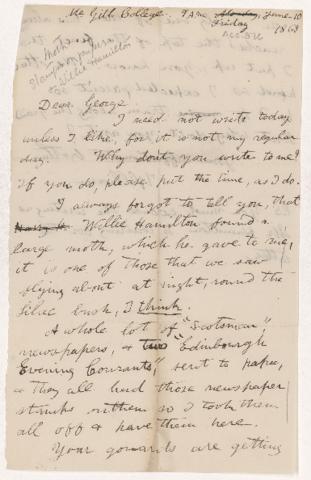 Mc Gill College. 7 A.M. Monday, June 10
Friday
1863
Moth
Stamps for paper
Willie Hamilton
Dear George
I need not write today
unless I like, for it is not my regular
day. Why don't you write to me?
If you do, please put the time, as I do.
I always forgot to tell you that
Harry H. Willie Hamilton found a
large moth, which he gave to me,
it is one of those that we saw
flying about at night, round the
lilac bush, I think.
A whole lot of "Scotsman",
newspapers, & two "Edinburgh
Evening Courants", sent to papa,
& they all had those newspaper
stamps on them so I took them
all off & have them here.
Your gowards are getting